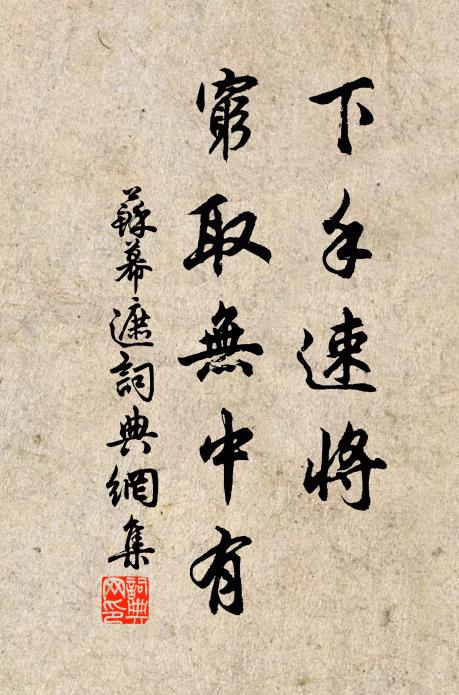 下手速將
窮取無中有
蘇幕遮詞典網集
詞典
网印